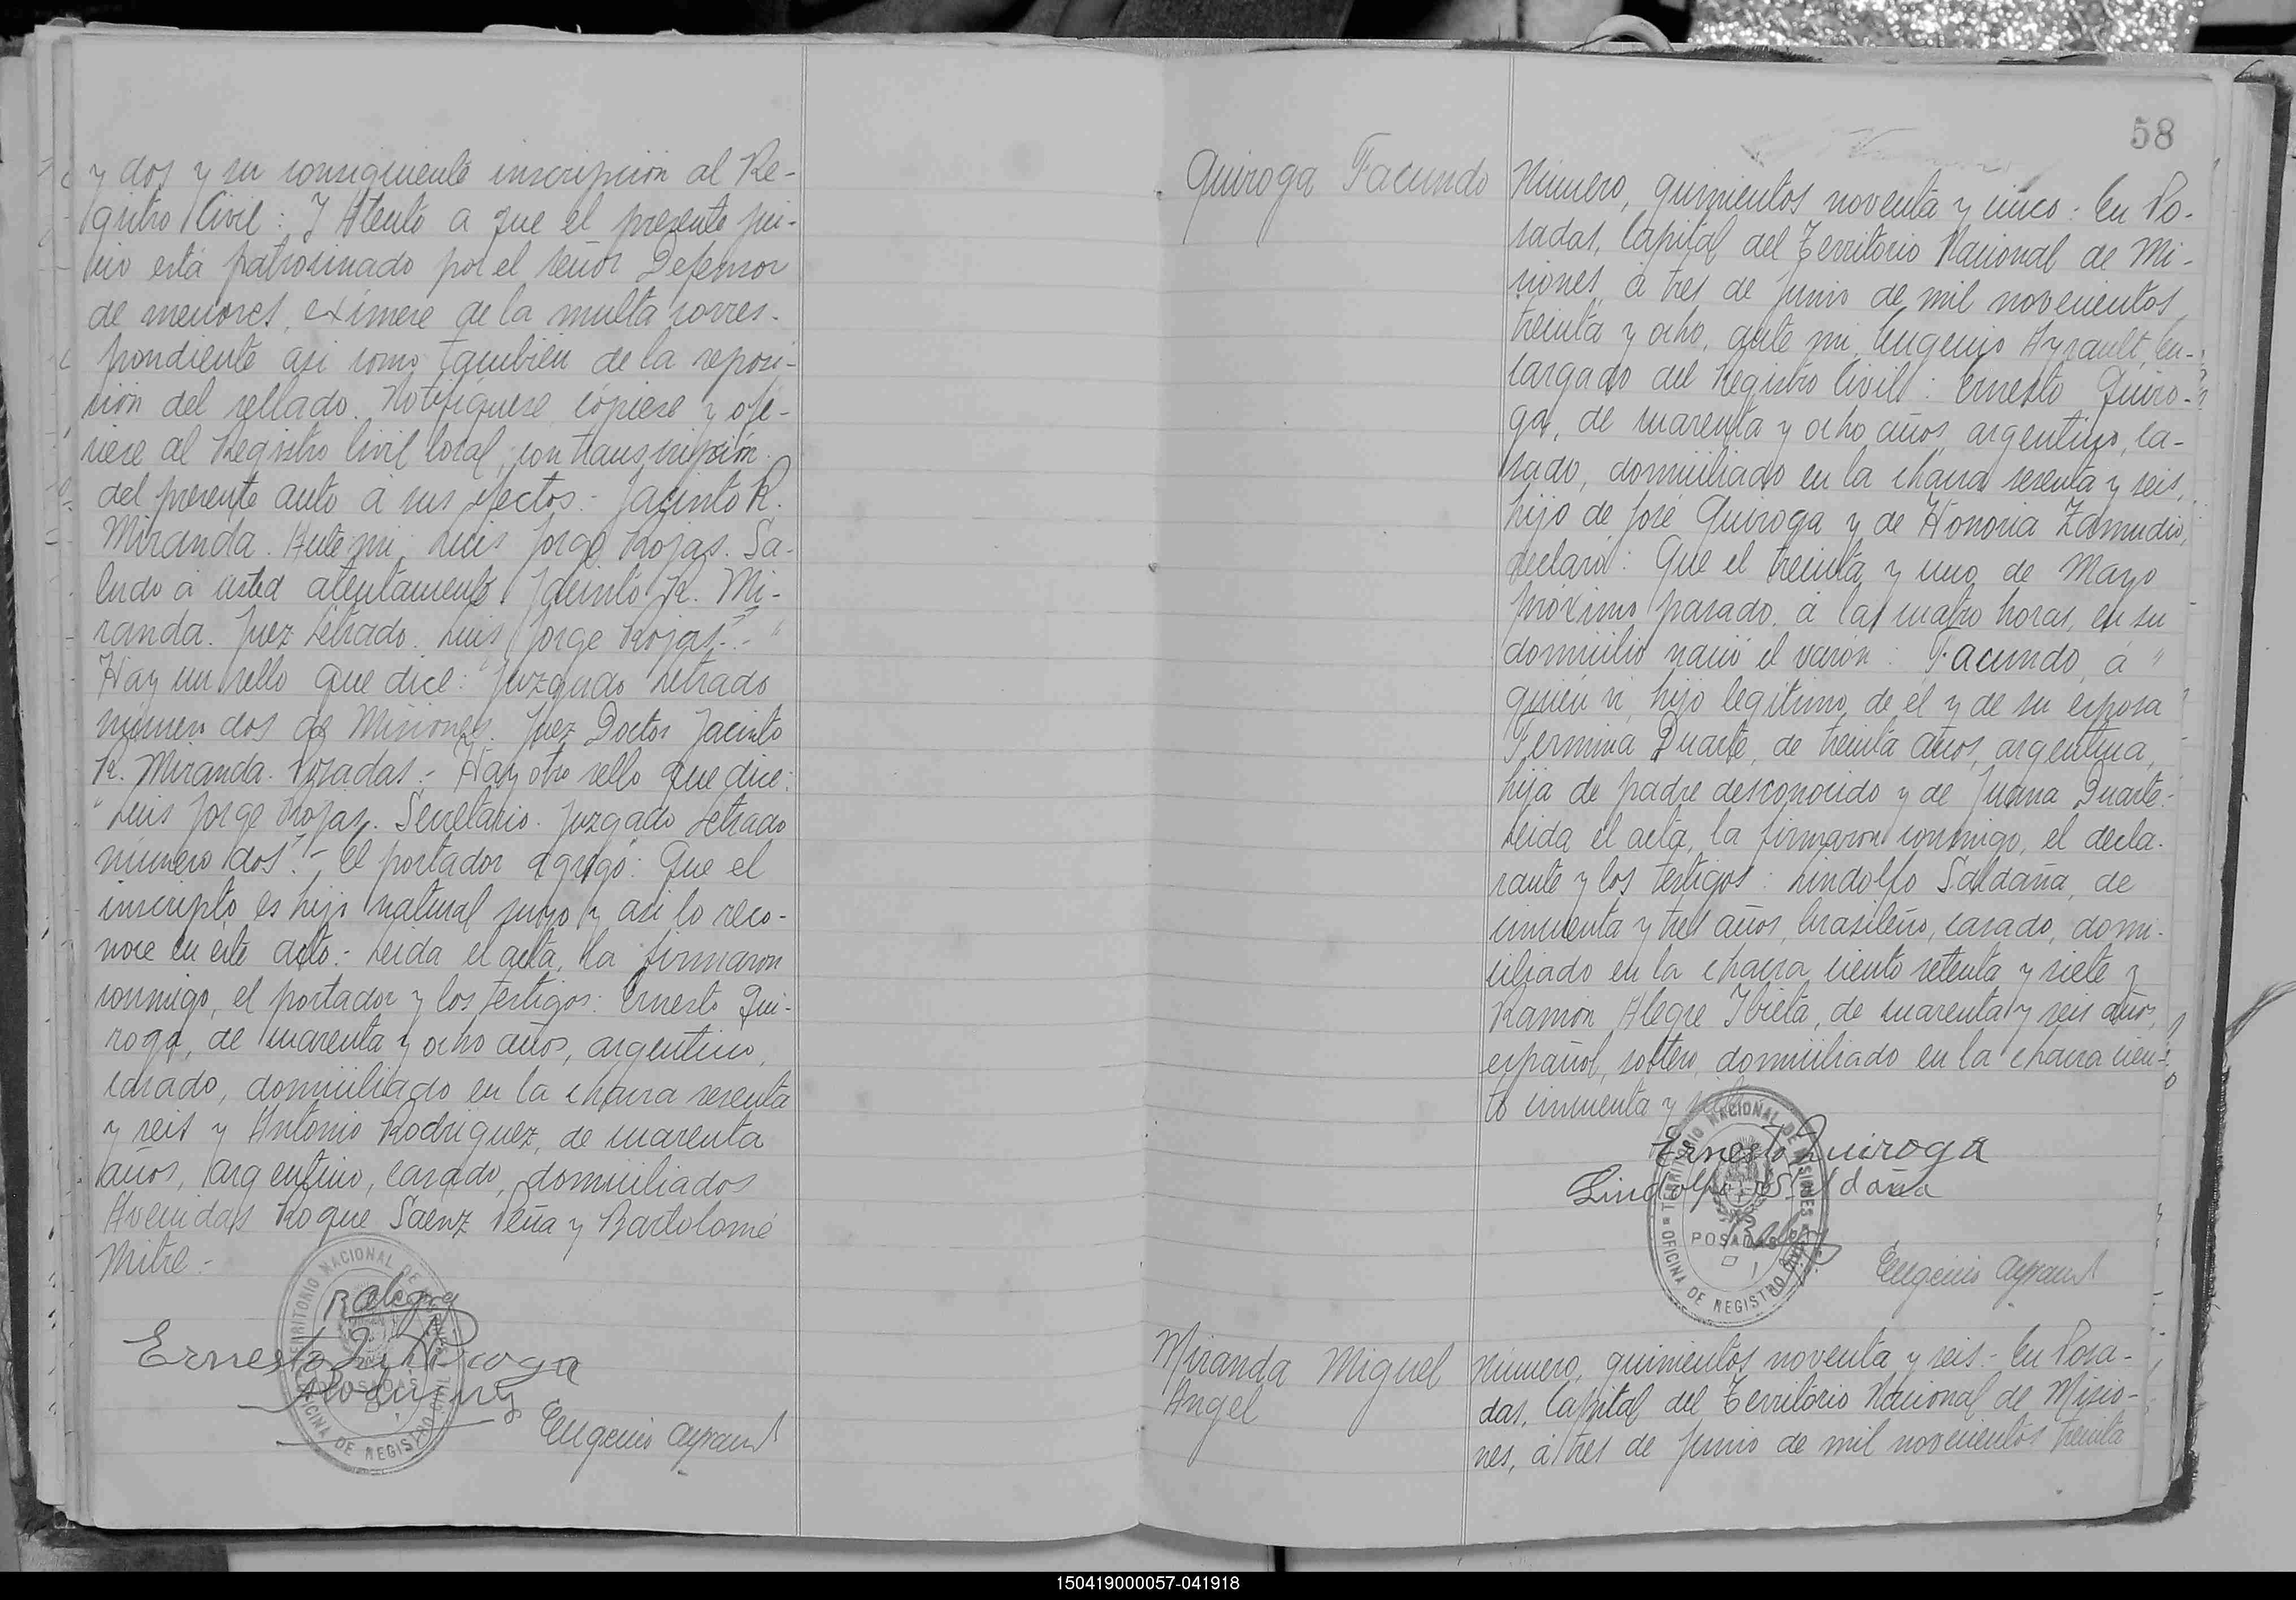 y dos y su consiguiente inscripción al Re-
gistro Civil: Y Atento a que el presente jui-
cio está patrocinado por el señor Defensor
de menores, exímese de la multa corres-
pondiente asi como también de la reposi-
ción del sellado. Notifíquese, cópiese y ofi-
ciese al Registro Civil local, con transcripción
del presente auto á sus efectos.- Jacinto R.
Miranda. Ante mi: Luis Jorge Rojas. Sa-
ludo á usted atentamente. Jacinto R. Mi-
randa. Juez Letrado. Luis Jorge Rojas.-"
Hay un sello que dice: "Juzgado Letrado
número dos de Misiones. Juez Doctor Jacinto
R. Miranda. Posadas.- Hay otro sello que dice:
"Luis Jorge Rojas. Secretario. Juzgado Letrado
número dos".- El portador agregó: Que el
inscripto es hijo natural suyo y asi lo reco-
noce en éste acto.- Leida el acta, la firmaron
conmigo, el portador y los testigos: Ernesto Qui-
roga, de cuarenta y ocho años, argentino,
casado, domiciliado en la chacra sesenta
y seis y Antonio Rodriguez, de cuarenta
años, argentino, casado, domiciliados
Avenidas Roque Saenz Peña y Bartolomé
Mitre.-
R Alegre
Ernesto Quiroga
Rodriguez
Eugenio Ayrault
TERRITORIO NACIONAL DE MISIONES
POSADAS
OFICINA DE REGISTRO CIVIL
58
Quiroga Facundo
Número, quinientos noventa y cinco: En Po-
sadas, Capital del Territorio Nacional de Mi-
siones, á tres de Junio de mil novecientos
treinta y ocho, ante mi, Eugenio Ayrault, En-
cargado del Registro Civil: Ernesto Quiro-
ga, de cuarenta y ocho años, argentino, ca-
sado, domiciliado en la chacra sesenta y seis,
hijo de José Quiroga y de Honoria Zamudio,
declaró: Que el treinta y uno de Mayo
próximo pasado, á las cuatro horas, en su
domicilio nació el varón: Facundo, á
quién vi, hijo legítimo de él y de su esposa
Fermina Duarte, de treinta años, argentina,
hija de padre desconocido y de Juana Duarte.-
Leida el acta, la firmaron conmigo, el decla-
rante y los testigos: Lindolfo Saldaña, de
cincuenta y tres años, brasileño, casado, domi-
ciliado en la chacra ciento setenta y siete y
Ramón Alegre Ibieta, de cuarenta y seis años,
español, soltero, domiciliado en la chacra cien-
to cincuenta y
Ernesto Quiroga
Lindolfo Saldaña
Eugenio Ayrault
TERRITORIO NACIONAL DE MISIONES
POSADAS
OFICINA DE REGISTRO CIVIL
Miranda Miguel
Angel
Número, quinientos noventa y seis.- En Posa-
das, Capital del Territorio Nacional de Misio-
nes, á tres de Junio de mil novecientos treinta
150419000057-041918